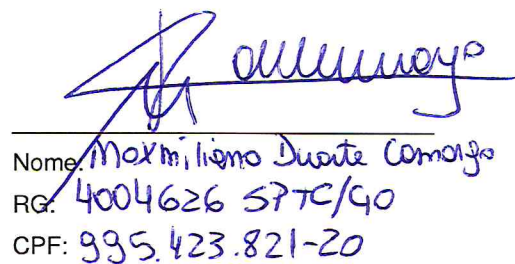 Nome: Maxmiliano Duarte Camargo
RG: 4004626 SPTC/GO
CPF: 995.423.821-20